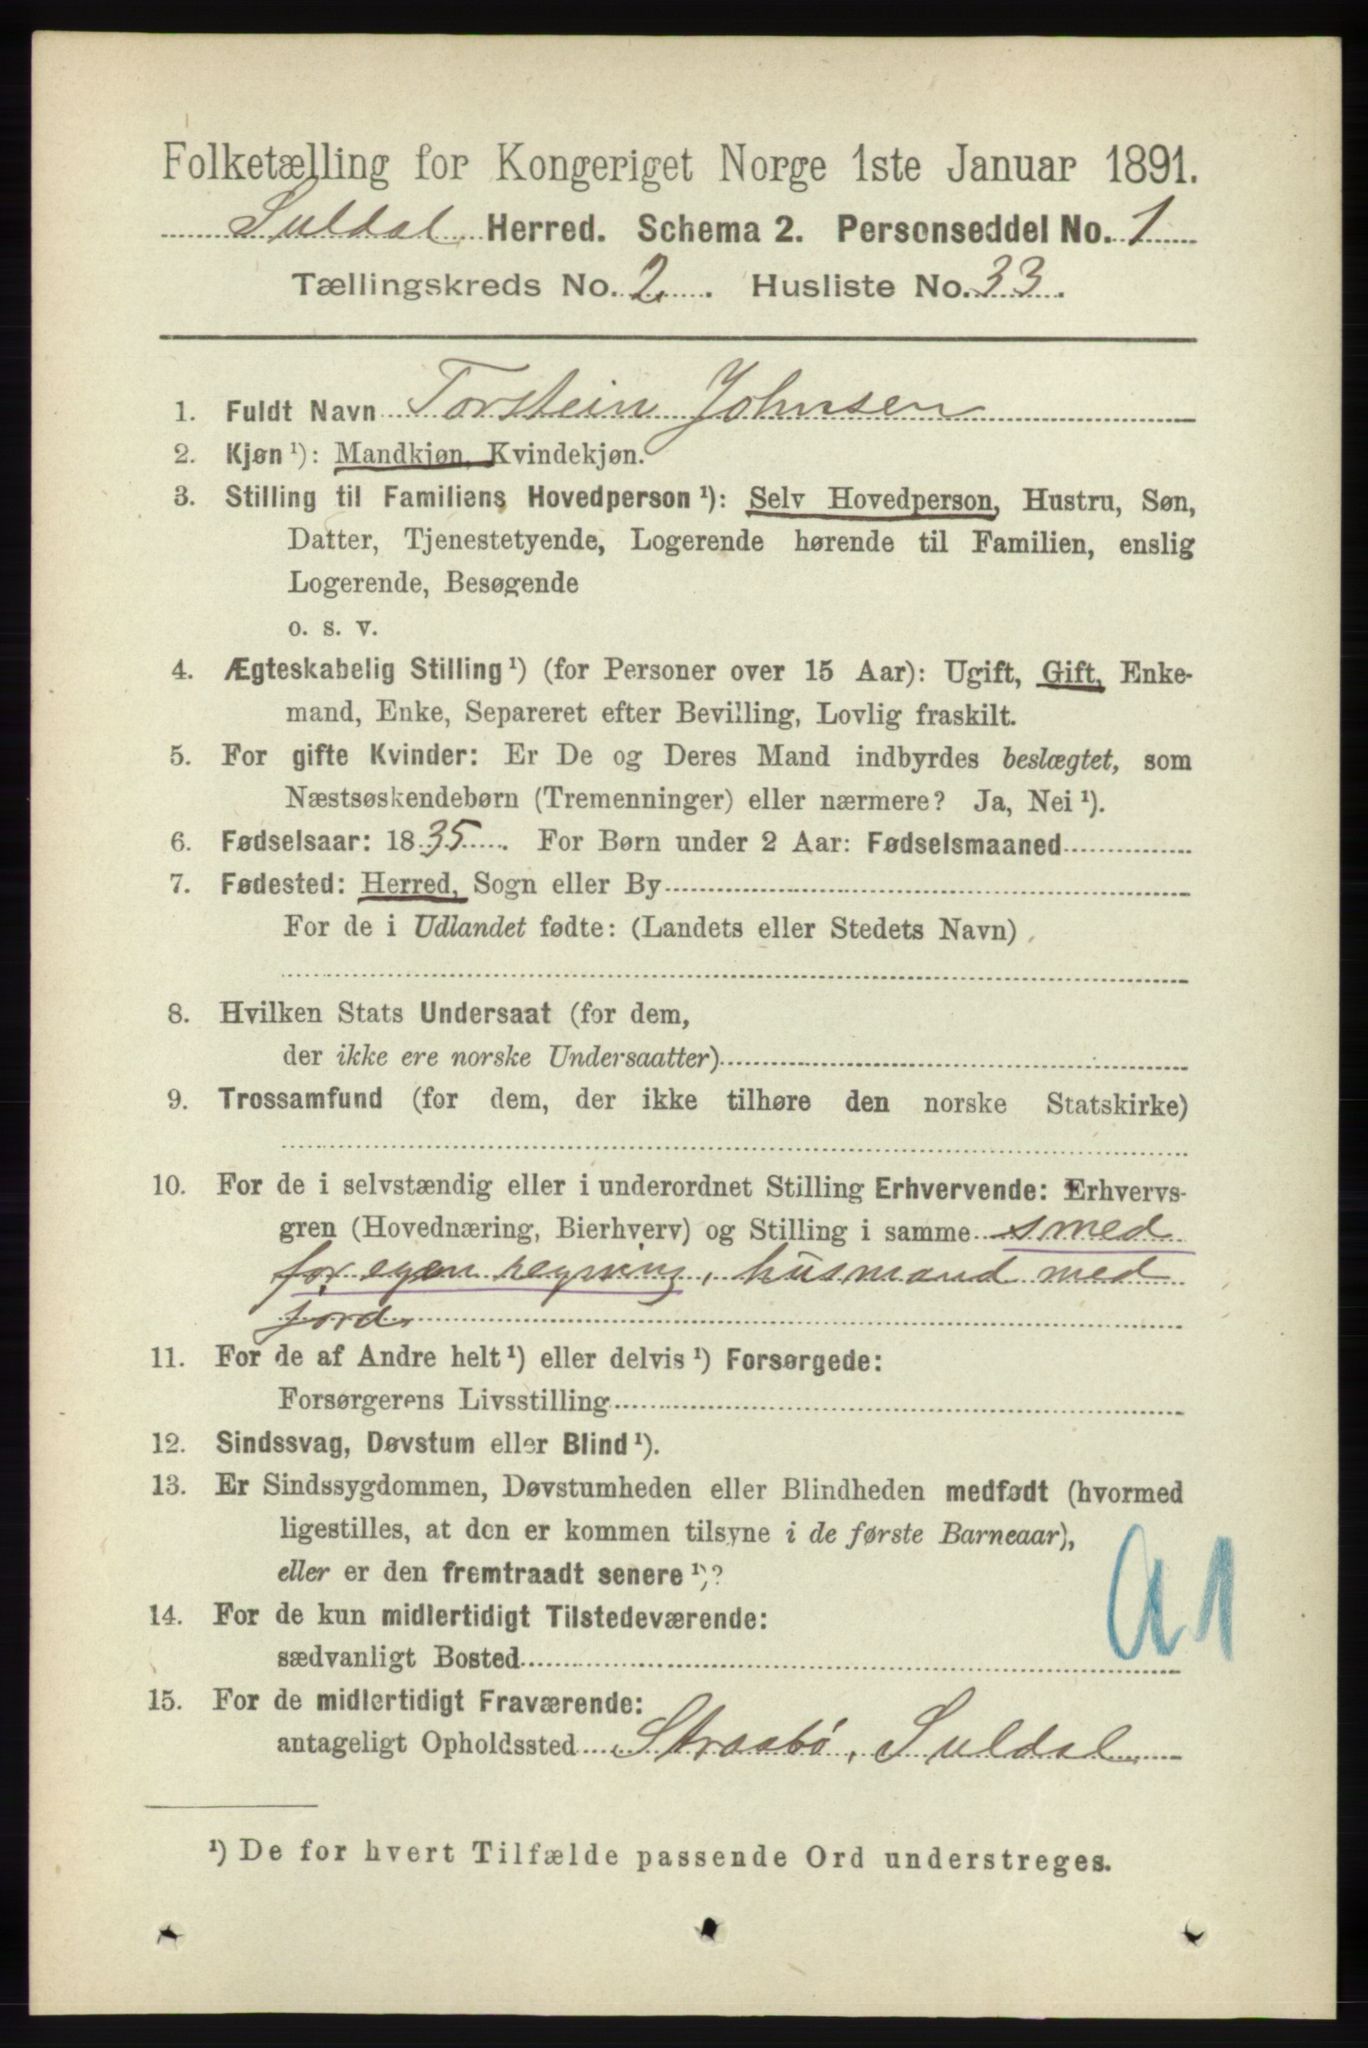 Folketælling for Kongeriget Norge 1ste Januar 1891.
Suldal Herred. Schema 2. Personseddel No. 1
Tællingskreds No. 2. Husliste No. 33.
1. Fuldt Navn Torstein Johnsen
2. Kjøn ¹): Mandkjøn, Kvindekjøn.
3. Stilling til Familiens Hovedperson ¹): Selv Hovedperson, Hustru, Søn,
Datter, Tjenestetyende, Logerende hørende til Familien, enslig
Logerende, Besøgende
o. s. v.
4. Ægteskabelig Stilling ¹) (for Personer over 15 Aar): Ugift, Gift, Enke-
mand, Enke, Separeret efter Bevilling, Lovlig fraskilt.
5. For gifte Kvinder: Er De og Deres Mand indbyrdes beslægtet, som
Næstsøskendebørn (Tremenninger) eller nærmere? Ja, Nei ¹).
6. Fødselsaar: 1835. For Børn under 2 Aar: Fødselsmaaned
7. Fødested: Herred, Sogn eller By
For de i Udlandet fødte: (Landets eller Stedets Navn)
8. Hvilken Stats Undersaat (for dem,
der ikke ere norske Undersaatter)
9. Trossamfund (for dem, der ikke tilhøre den norske Statskirke)
10. For de i selvstændig eller i underordnet Stilling Erhvervende: Erhvervs-
gren (Hovednæring, Bierhverv) og Stilling i samme smed
for egen regning, husmand med
jord.
11. For de af Andre helt ¹) eller delvis ¹) Forsørgede:
Forsørgerens Livsstilling
12. Sindssvag, Døvstum eller Blind ¹).
13. Er Sindssygdommen, Døvstumheden eller Blindheden medfødt (hvormed
ligestilles, at den er kommen tilsyne i de første Barneaar),
eller er den fremtraadt senere ¹)?
A1
14. For de kun midlertidigt Tilstedeværende:
sædvanligt Bosted
15. For de midlertidigt Fraværende:
antageligt Opholdssted Straabø, Suldal.
¹) De for hvert Tilfælde passende Ord understreges.